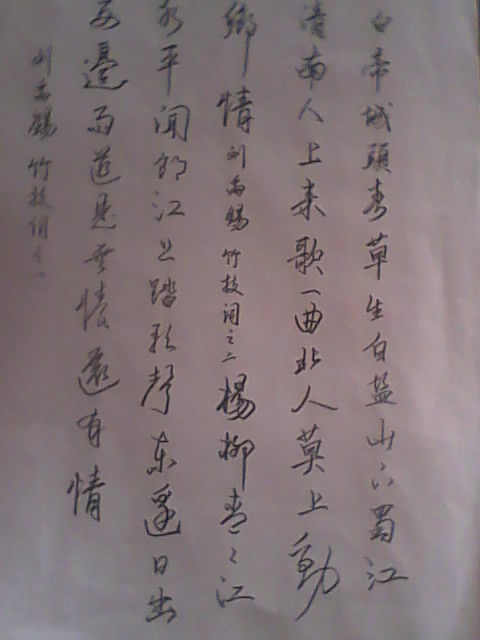 白帝城頭春草生白盐山下蜀江
清南人上来歌一曲北人莫上動
鄉情刘禹锡竹枝词之二楊柳青々江
水平闻郎江上踏歌聲东邊日出
西邊雨道是無情還有情
刘禹锡竹枝词之一